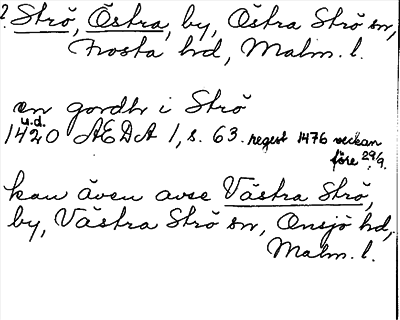 ? Strö, Östra, by, Östra Strö sn,
Frosta hd, Malm. l.
en gordh i Strö
u.d.
1420 AEDA 1, s. 63. regest 1476 veckan
före 29/9.
kan även avse Västra Strö,
by, Västra Strö sn, Onsjö hd,
Malm. l.